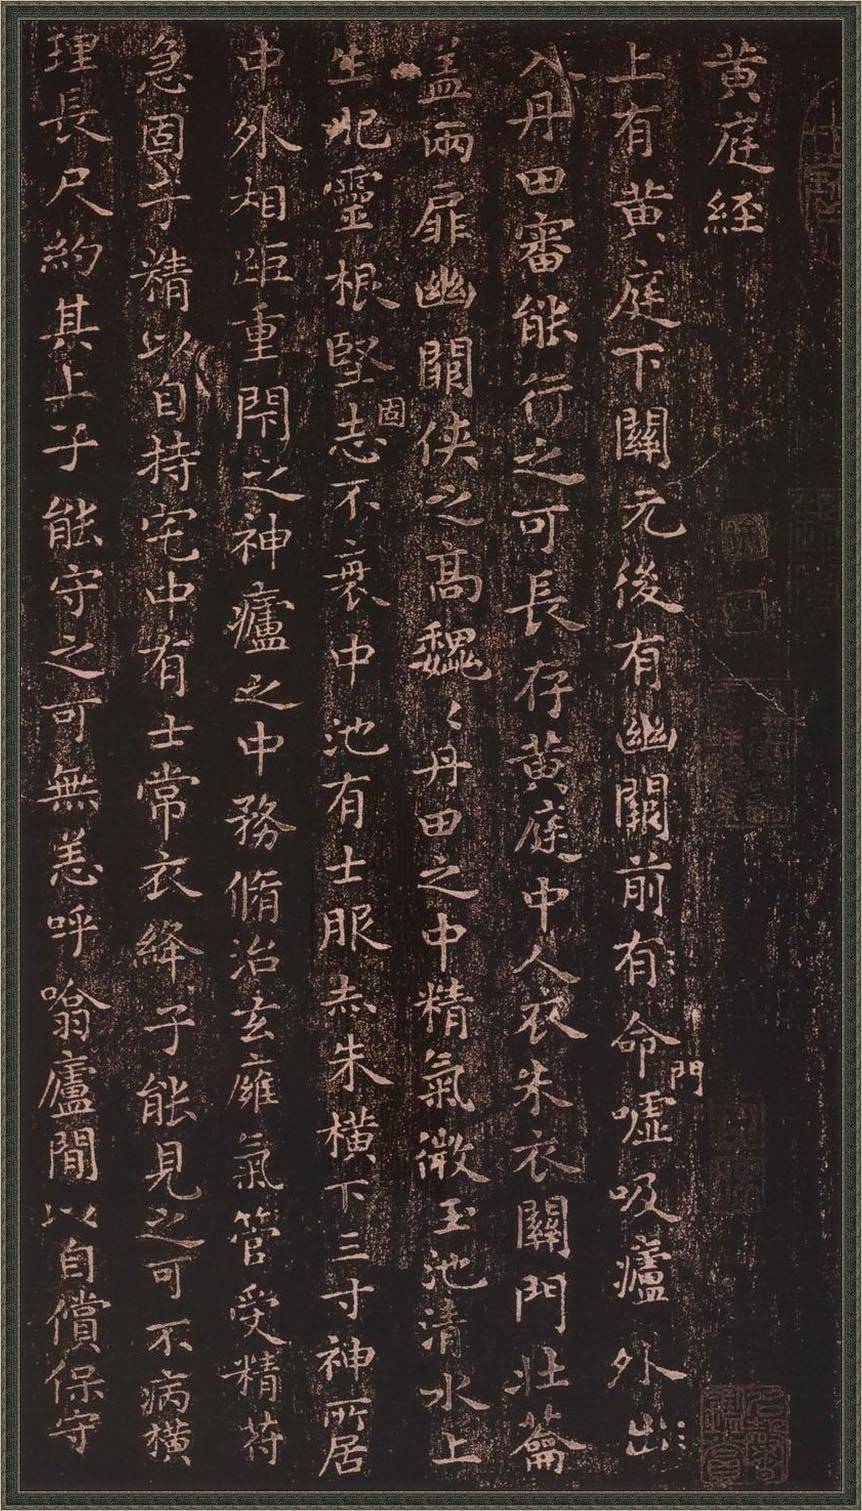 黄庭経
上有黄庭下關元後有幽闕前有命門嘘吸廬外出
入丹田審能行之可長存黄庭中人衣朱衣關門壮蘥
盖兩扉幽闕侠之高魏〻丹田之中精氣微玉池清水上
生肥靈根堅固志不衰中池有士服赤朱横下三寸神所居
中外相距重閇之神廬之中務脩治玄㢕氣管受精苻
急固子精以自持宅中有士常衣絳子能見之可不病横
理長尺約其上子能守之可無恙呼噏廬間以自償保守